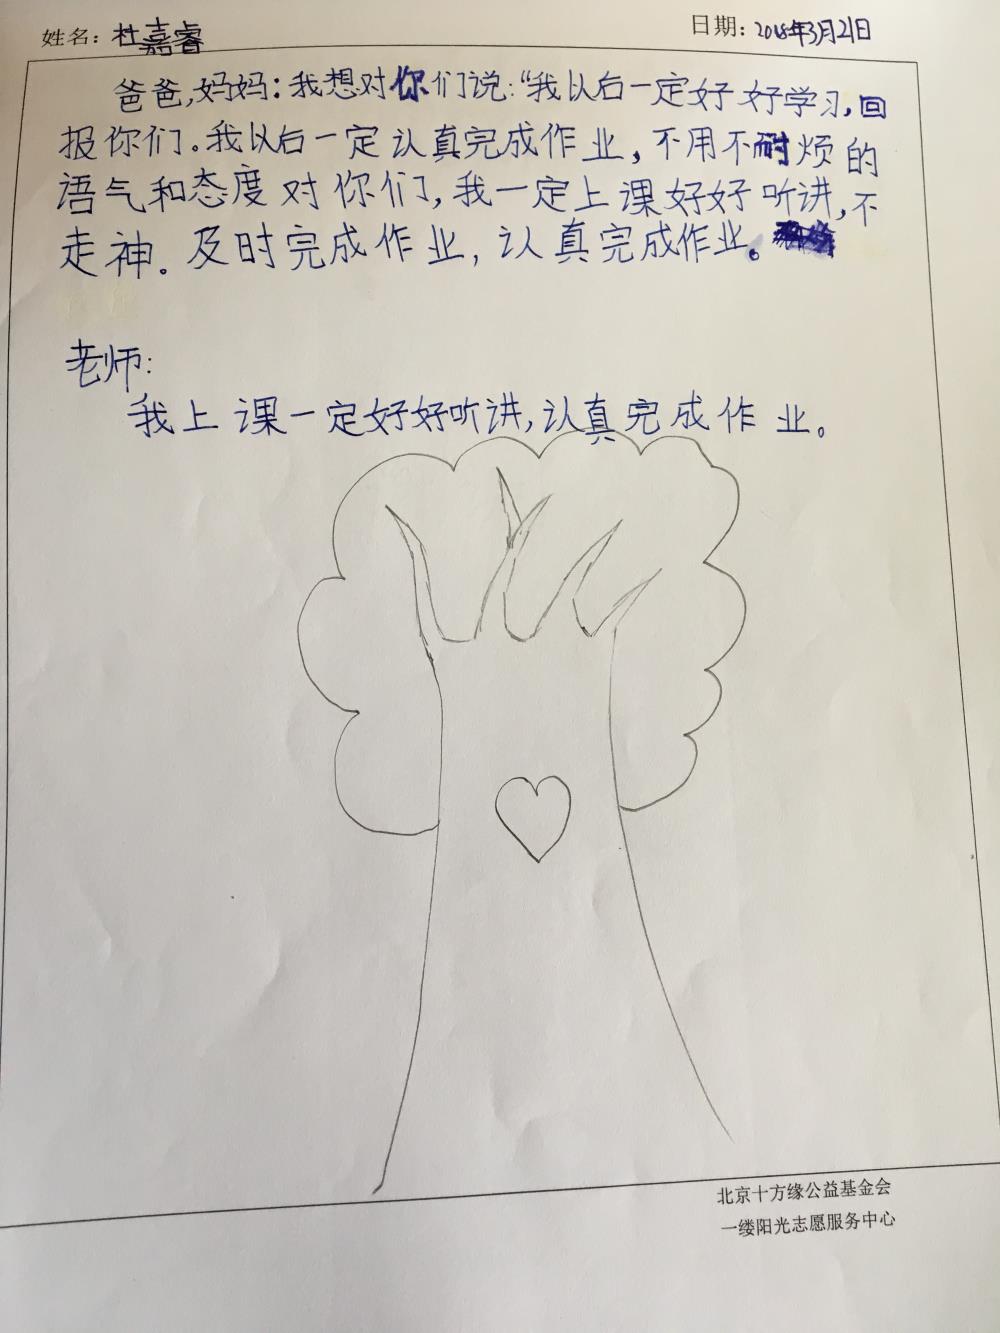 姓名：杜嘉睿
日期：2018年3月21日
爸爸,妈妈：我想对你们说：“我以后一定好好学习,回
报你们。我以后一定认真完成作业，不用不耐烦的
语气和态度对你们,我一定上课好好听讲,不
走神。及时完成作业，认真完成作业。
老师：
我上课一定好好听讲,认真完成作业。
北京十方缘公益基金会
一缕阳光志愿服务中心